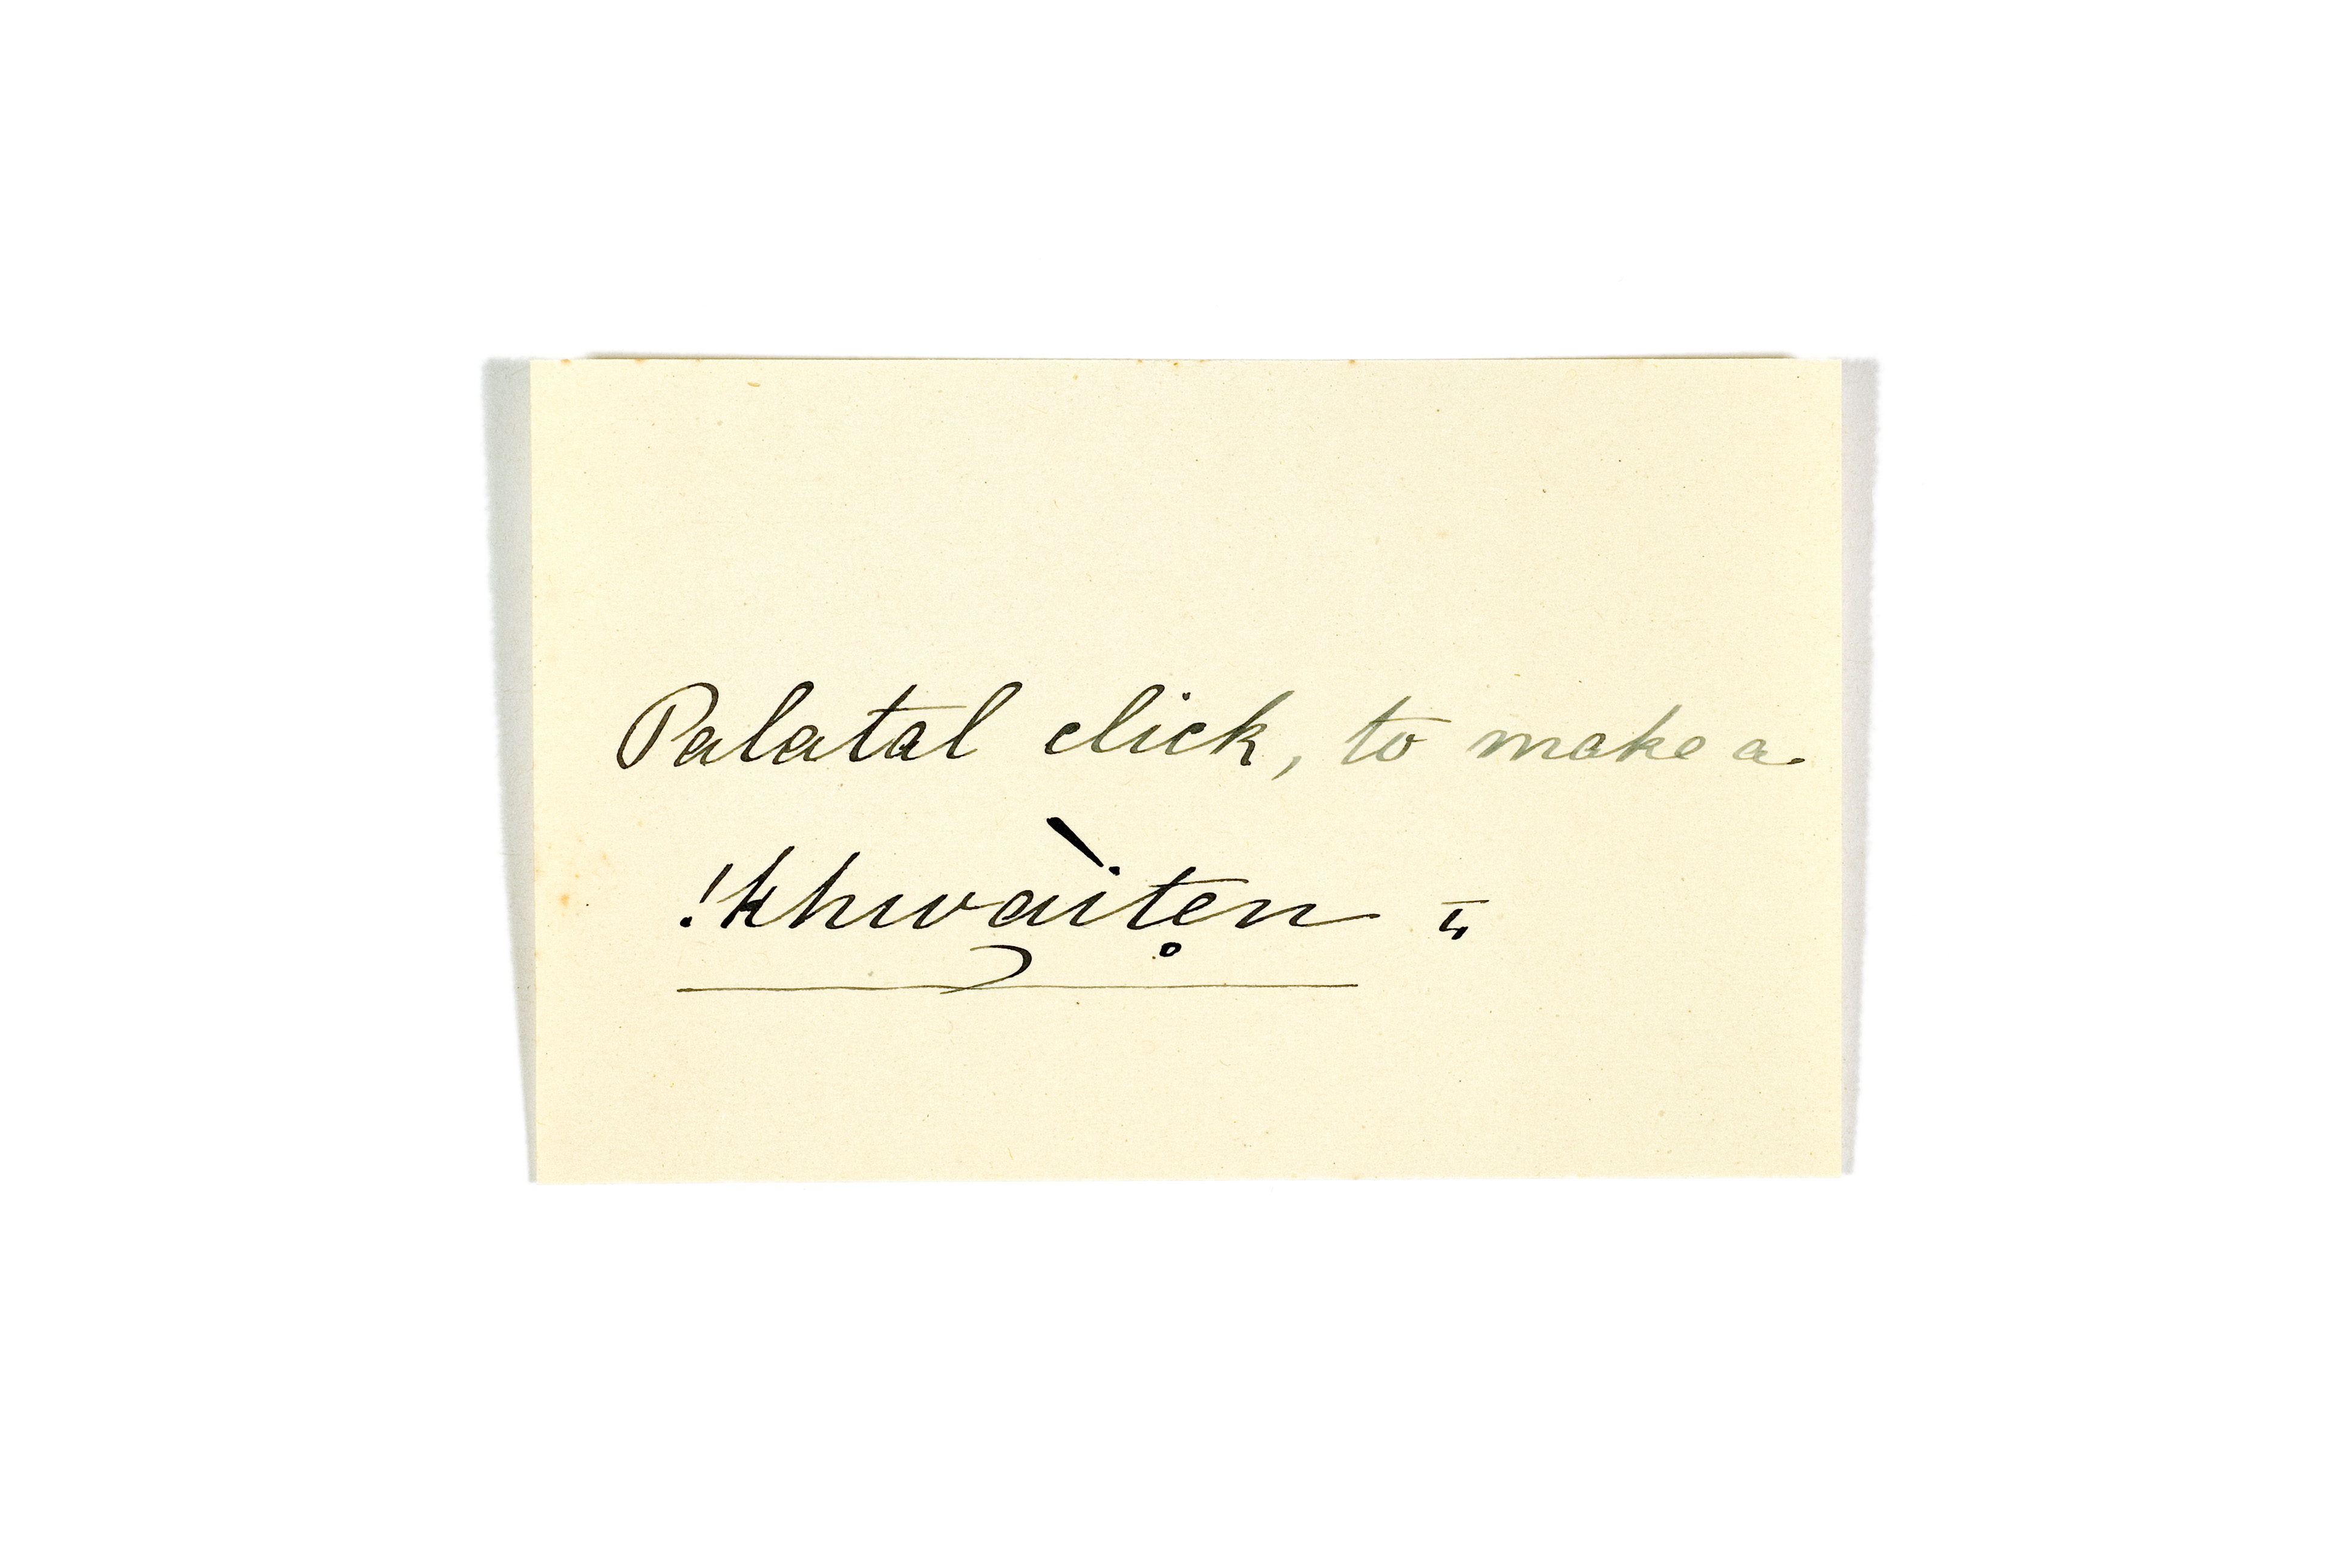 Palatal click, to make a
!khwàitẹn